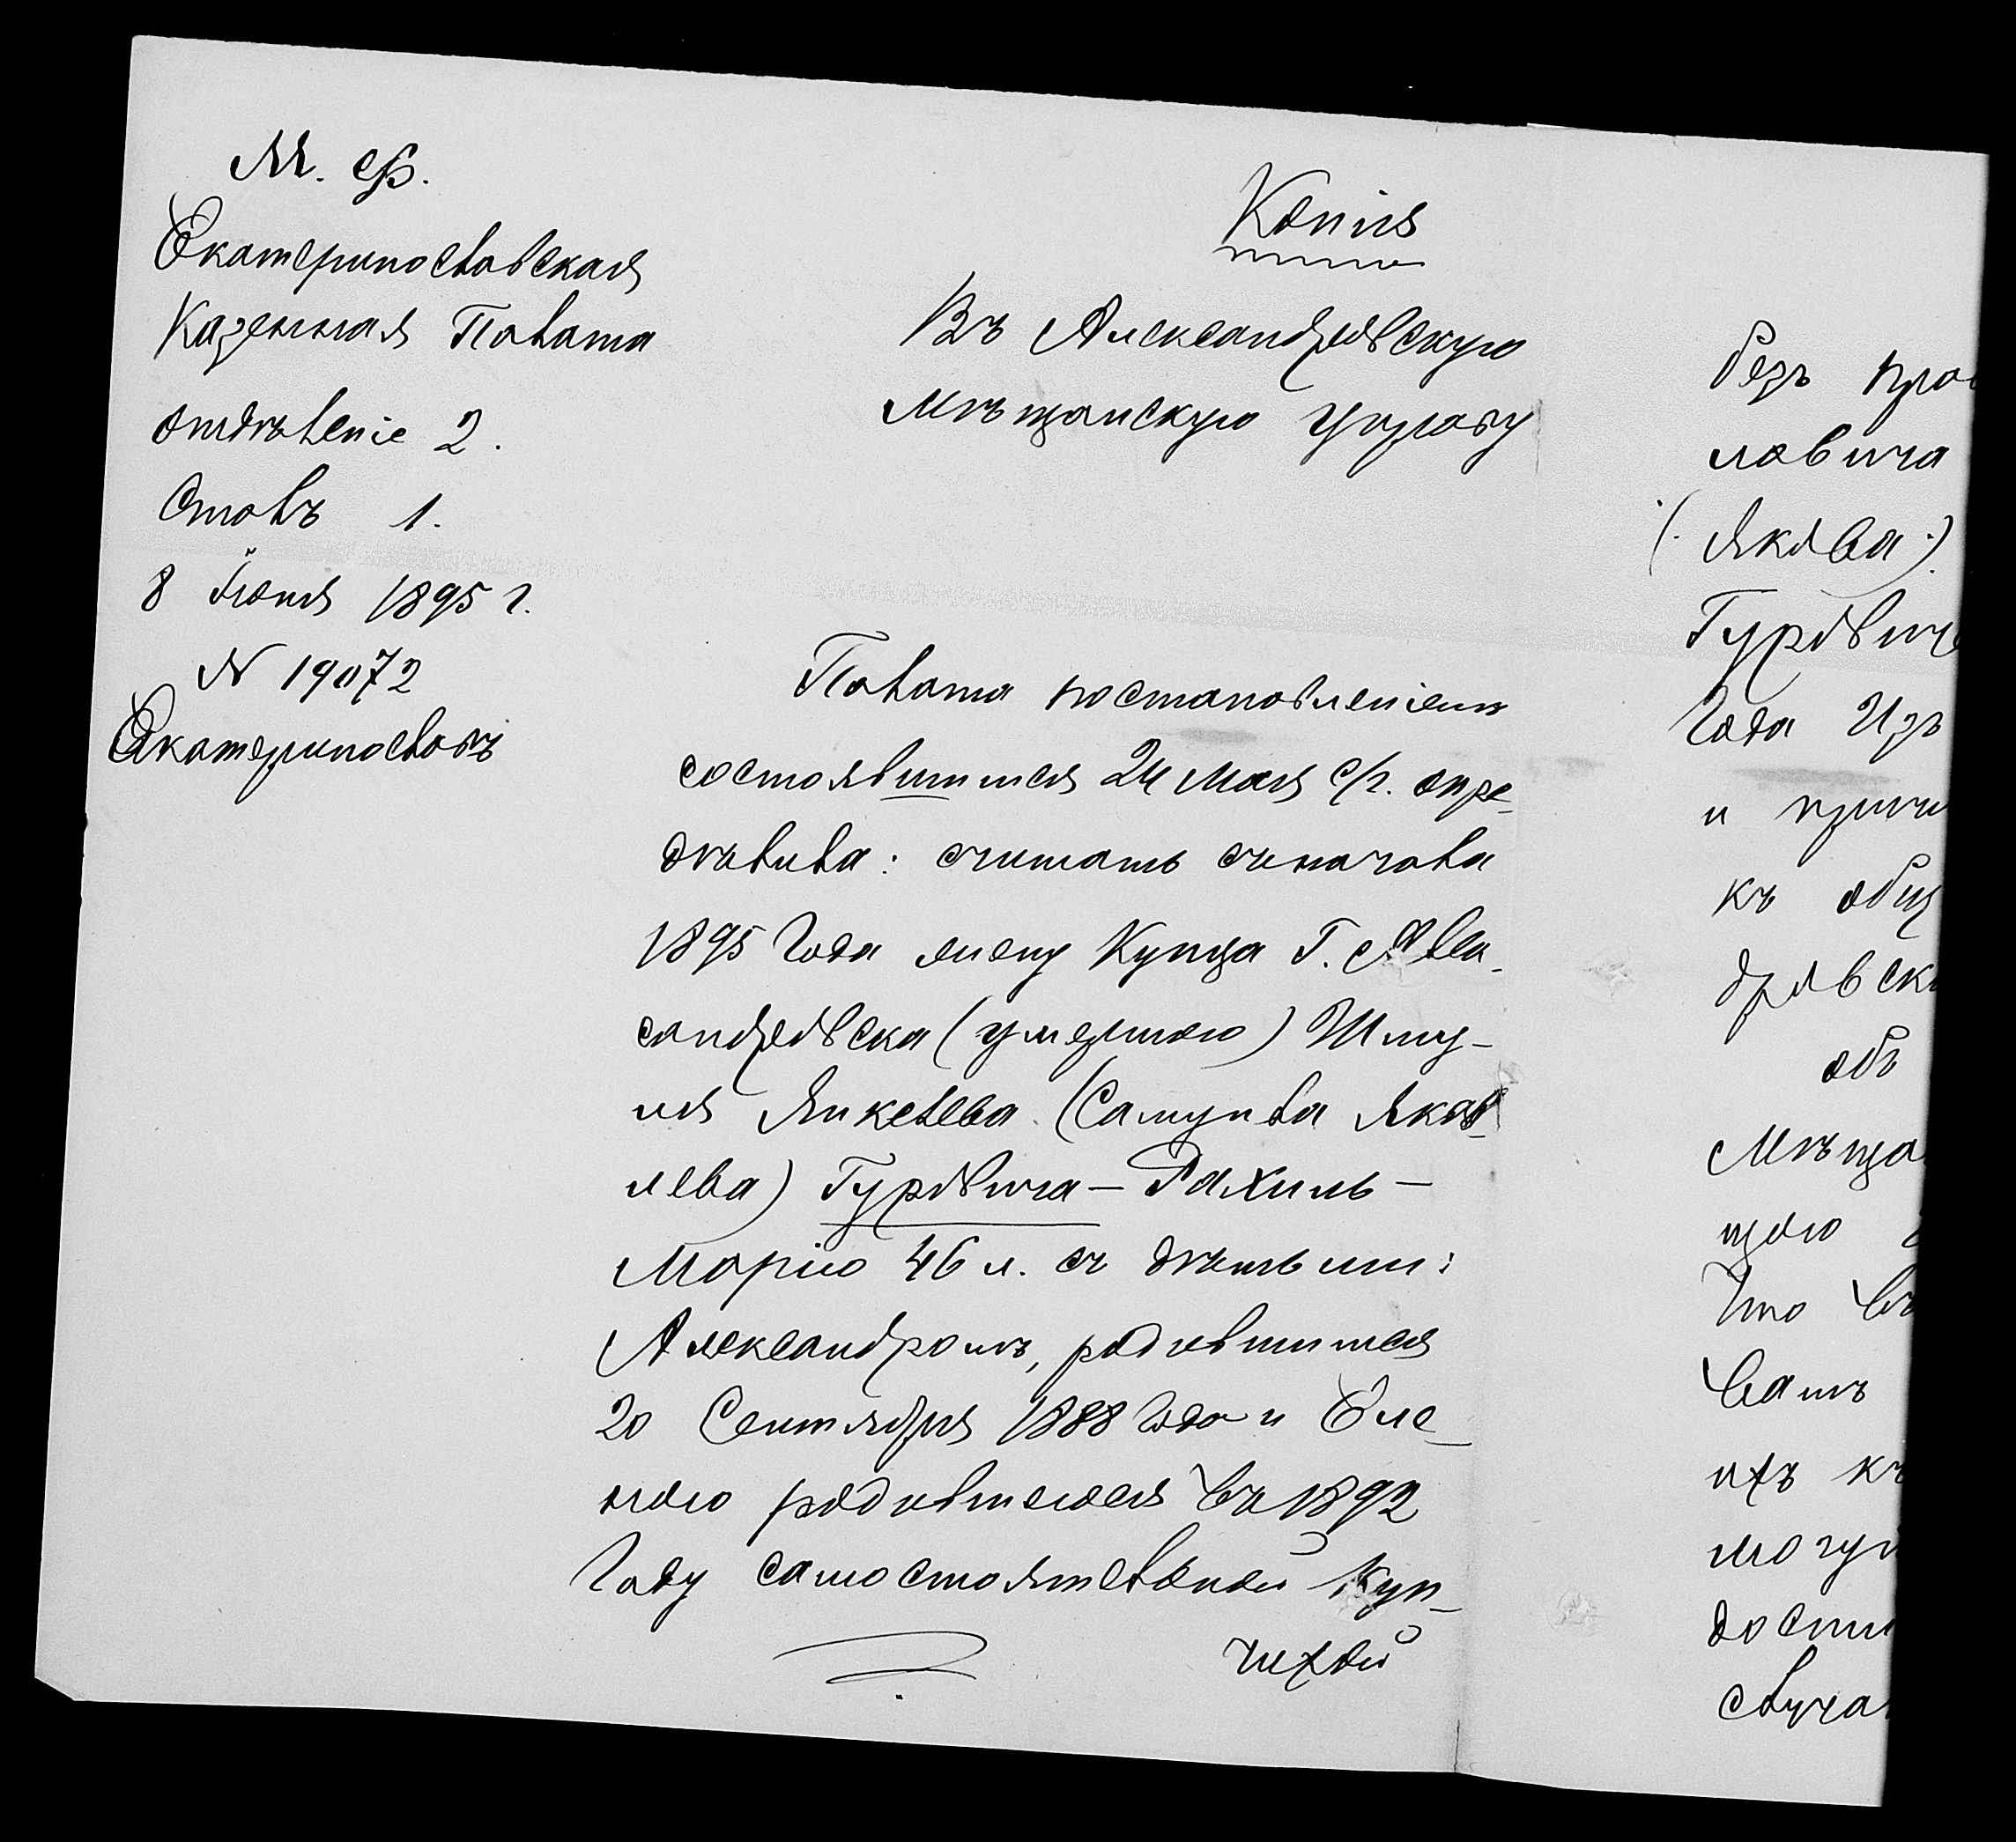 М. Ф.
Екатеринославская
Казенная Палата
отдѣленіе 2.
Столъ 1.
8 Іюня 1895 г.
N 19072
Екатеринославъ
Копія
Въ Александровскую
Мѣщанскую Управу
Палата постановленіемъ
состоявшимся 24 Мая с/г. опре-
дѣлила: считать съ начала
1895 года жену Купца Г. Алек-
сандровска (умершаго) Шму-
ля Янкелева (Самуила Яков-
лева) Гуровича - Рахиль-
Марію 46 л. съ дѣтьми:
Александромъ, родившимся
20 Сентября 1888 года и Еле-
ною родившеюся въ 1892
году самостоятельной Куп-
чихой
безъ прав
ловича
(Якова)
Гурович
года Изъ
и причи
къ общ
дровск
объ
Мѣща
щаю
Что въ
вать
ихъ къ
могу
дости
случа